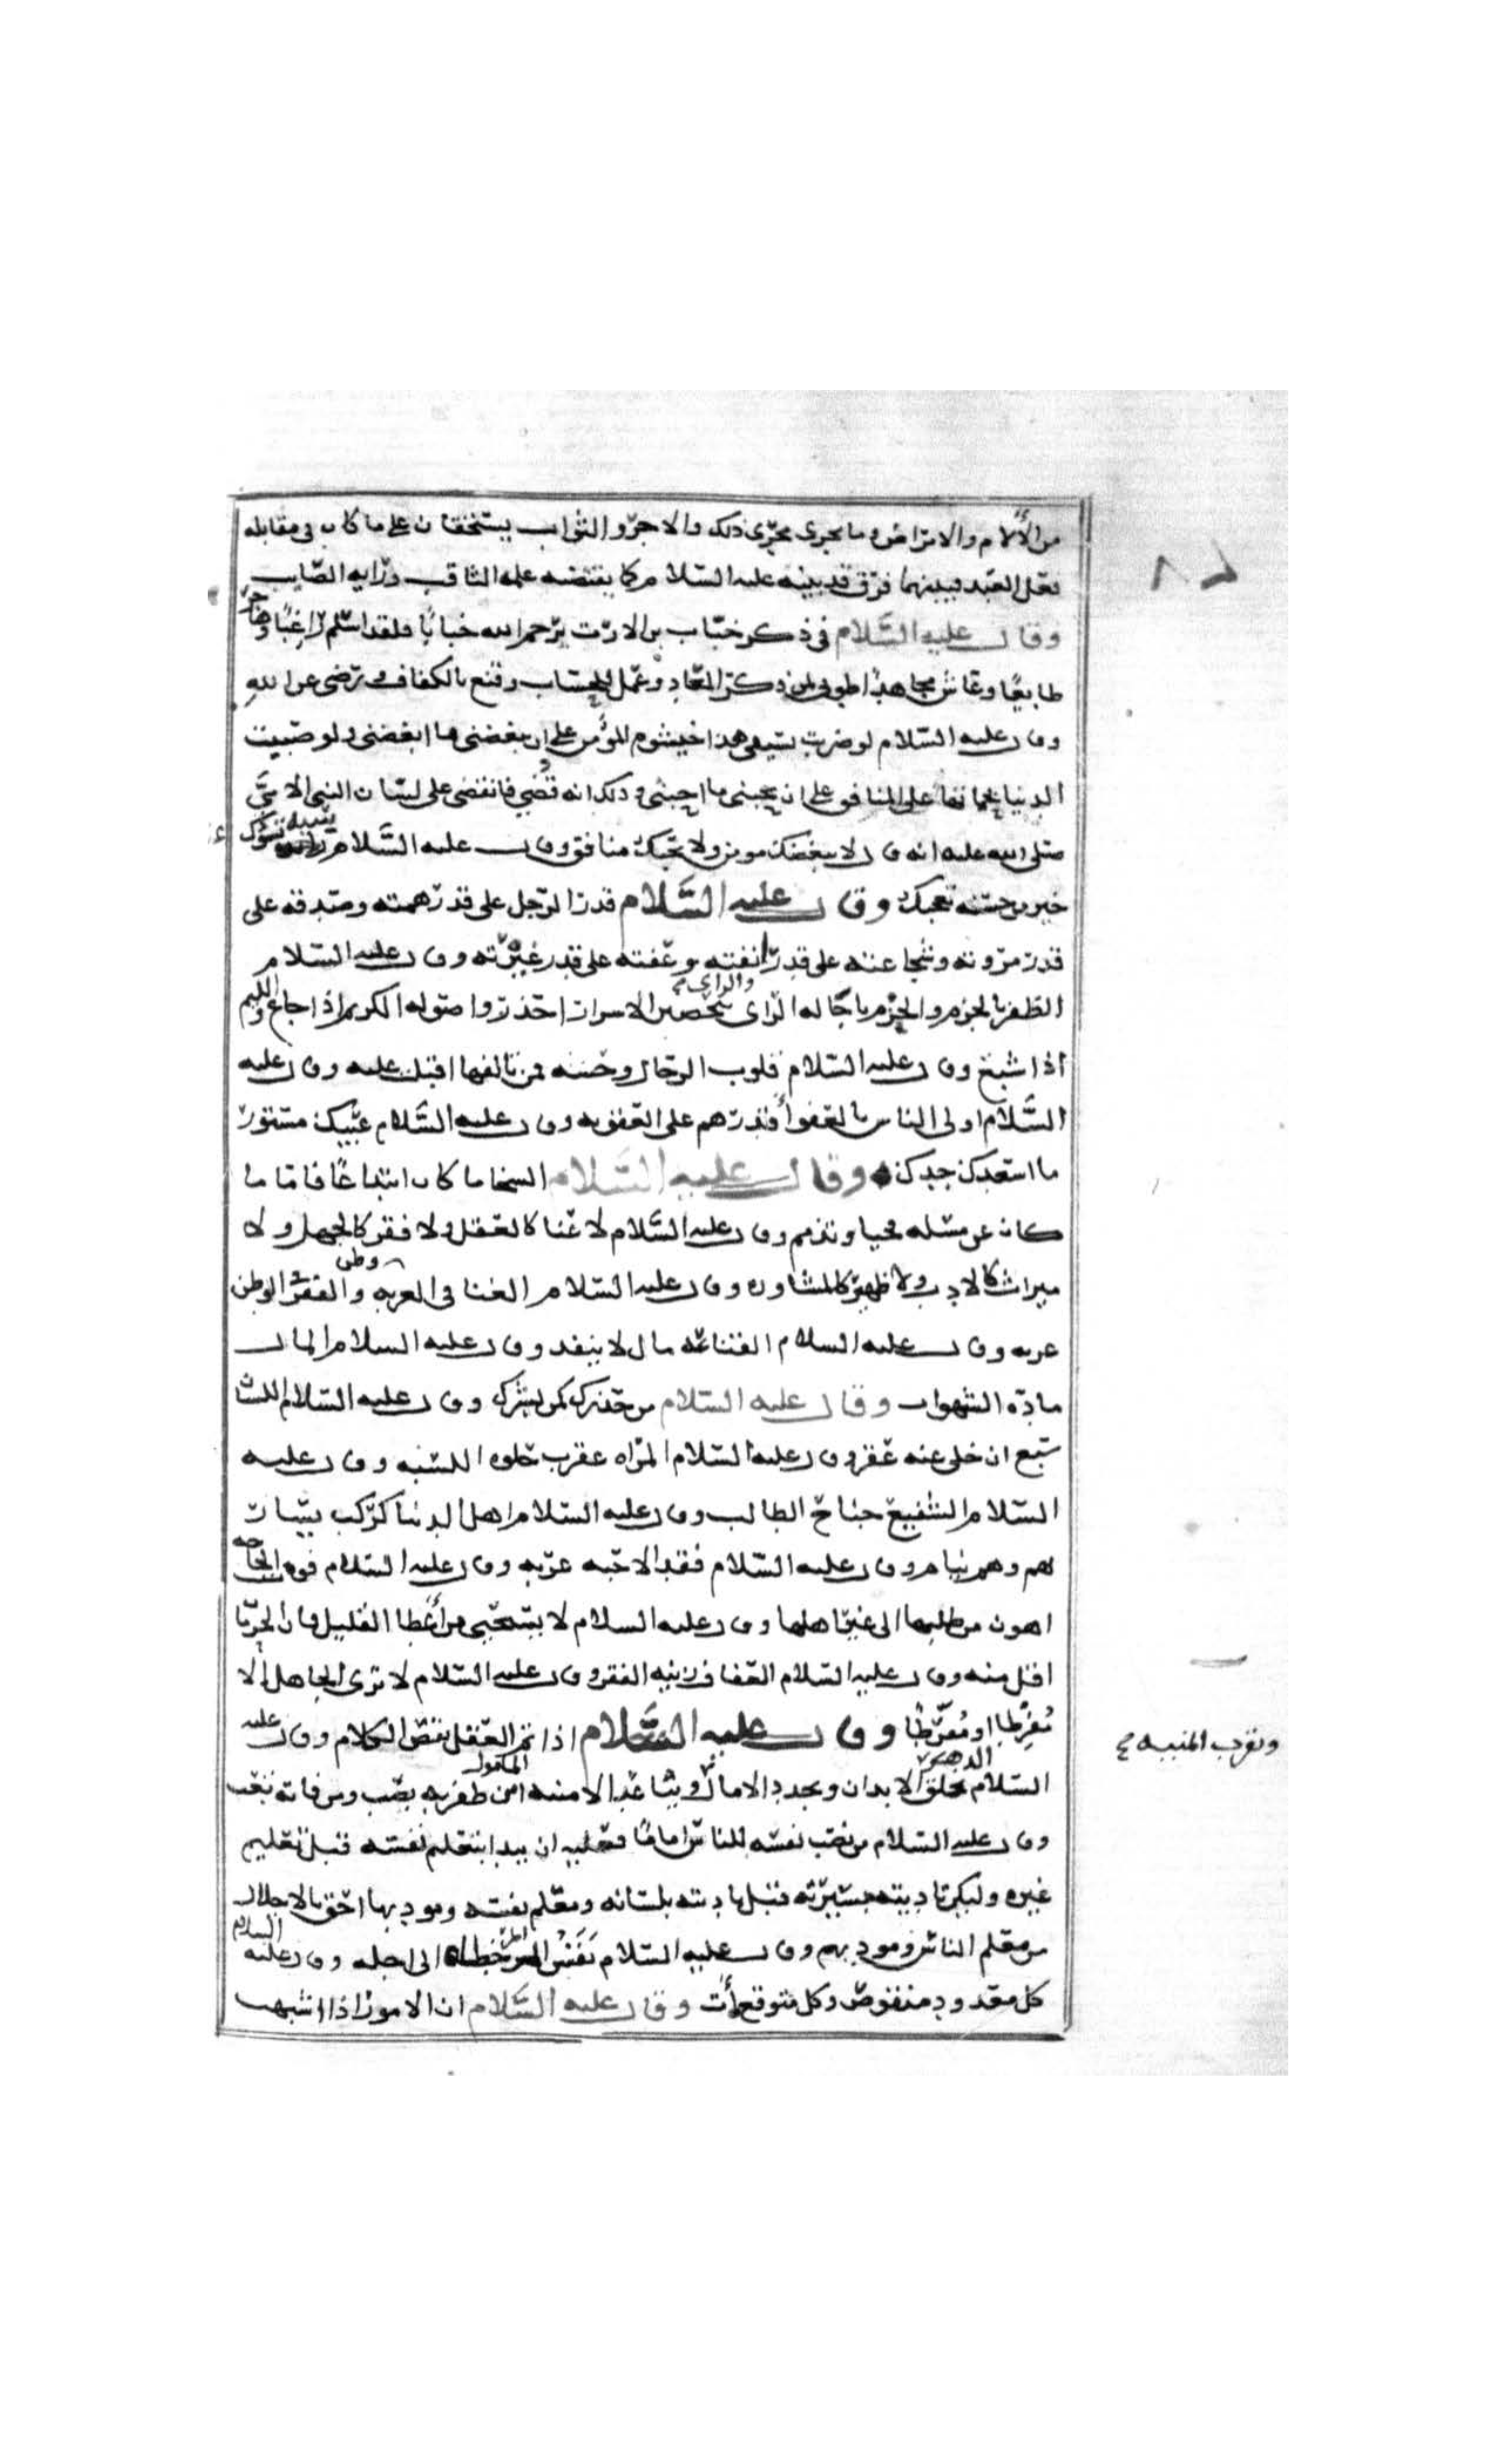 من الألام والامراض وما يجرى مجرى ذلك والاجر والثواب يستحقان على ما كان فى مقابله
فعل العبد فبينهما فرق قد بينه عليه السلام كما يقتضيه علمه الثاقب ورايه الصايب
وقال عليه السلام فى ذكر خباب بن الارت يرحم الله خبابا فلقد اسلم راغبا وهاجر
طايعا وعاش مجاهدا طوبى لمن ذكر المعاد وعمل للحساب وقنع بالكفاف ورضى عن الله
وقال عليه السلام لو ضربت بسيفى هذا خيشوم المؤمن على ان يبغضنى ما ابغضنى ولو صببت
الدنيا بجماتها على المنافق على ان يحبنى ما احبنى وذلك انه قضي فانقضى على لسان النبى الامىّ
صلى الله عليه انه قال لا يبغضك مومن ولا يحبك منافق وقال عليه السلام سيية تسوك
خير من حسنه تعجبك وقال عليه السلام قدر الرجل على قدر همته وصدقه على
قدر مروته وشجاعته على قدر انفته وعفته على قدر غيرته وقال عليه السلام
الظفر بالحزم والحزم باجاله الراى والراى بتحصين الاسرار احذروا صوله الكريم اذا جاع واللييم
اذا شبع وقال عليه السلام قلوب الرجال وحشيه فمن تالفها اقبلت عليه وقال عليه
السلام اولى الناس بالعفو أقدرهم على العقوبه وقال عليه السلام عيبك مستور
ما اسعدك جدك وقال عليه السلام السخا ما كان ابتداءًا فاما ما
كان عن مسله فحيا وتذمم وقال عليه السلام لا غنا كالعقل ولا فقر كالجهل ولا
ميراث كالادب ولا ظهير كالمشاوره وقال عليه السلام الغنا فى الغربه وطن والفقر فى الوطن
غربه وقال عليه السلام القناعه مال لا ينفد وقال عليه السلام المال
مادة الشهوات وقال عليه السلام من حذرك كمن بشرك وقال عليه السلام اللسان
سبع ان خلى عنه عقر وقال عليه السلام المراه عقرب حلوه اللسبه وقال عليه
السلام الشفيع جناح الطالب وقال عليه السلام اهل الدنيا كركب يسار
بهم وهم نيام وقال عليه السلام فقد الاحبه غربه وقال عليه السلام فوت الحاجه
اهون من طلبها الى غير اهلها وقال عليه السلام لا يستحيى من أعطا القليل فان الحرمان
اقل منه وقال عليه السلام العفاف زينه الفقر وقال عليه السلام لا ترى الجاهل إلا
مُفرِطا او مُفرّطا وقال عليه السلام اذا تم العقل نقص الكلام وقال عليه
السلام الدهر يخلق الابدان ويجدد الامال ويباعد الامنيه من ظفر به نصب ومن فاته تعب
ويقرب المنيه
وقال عليه السلام من نصب نفسه للناس اماما فعليه ان يبدا بتعليم نفسه قبل تعليم
غيره وليكن تاديبه بسيرته قبل تاديبه بلسانه ومعلم نفسه ومودبها احق بالاجلال
من معلم الناس ومودبهم وقال عليه السلام نَفَسُ المرء خطاه الى اجله وقال عليه السلام
كل معدود منقوص وكل متوقع أت وقال عليه السلام ان الامور اذا اشبهت